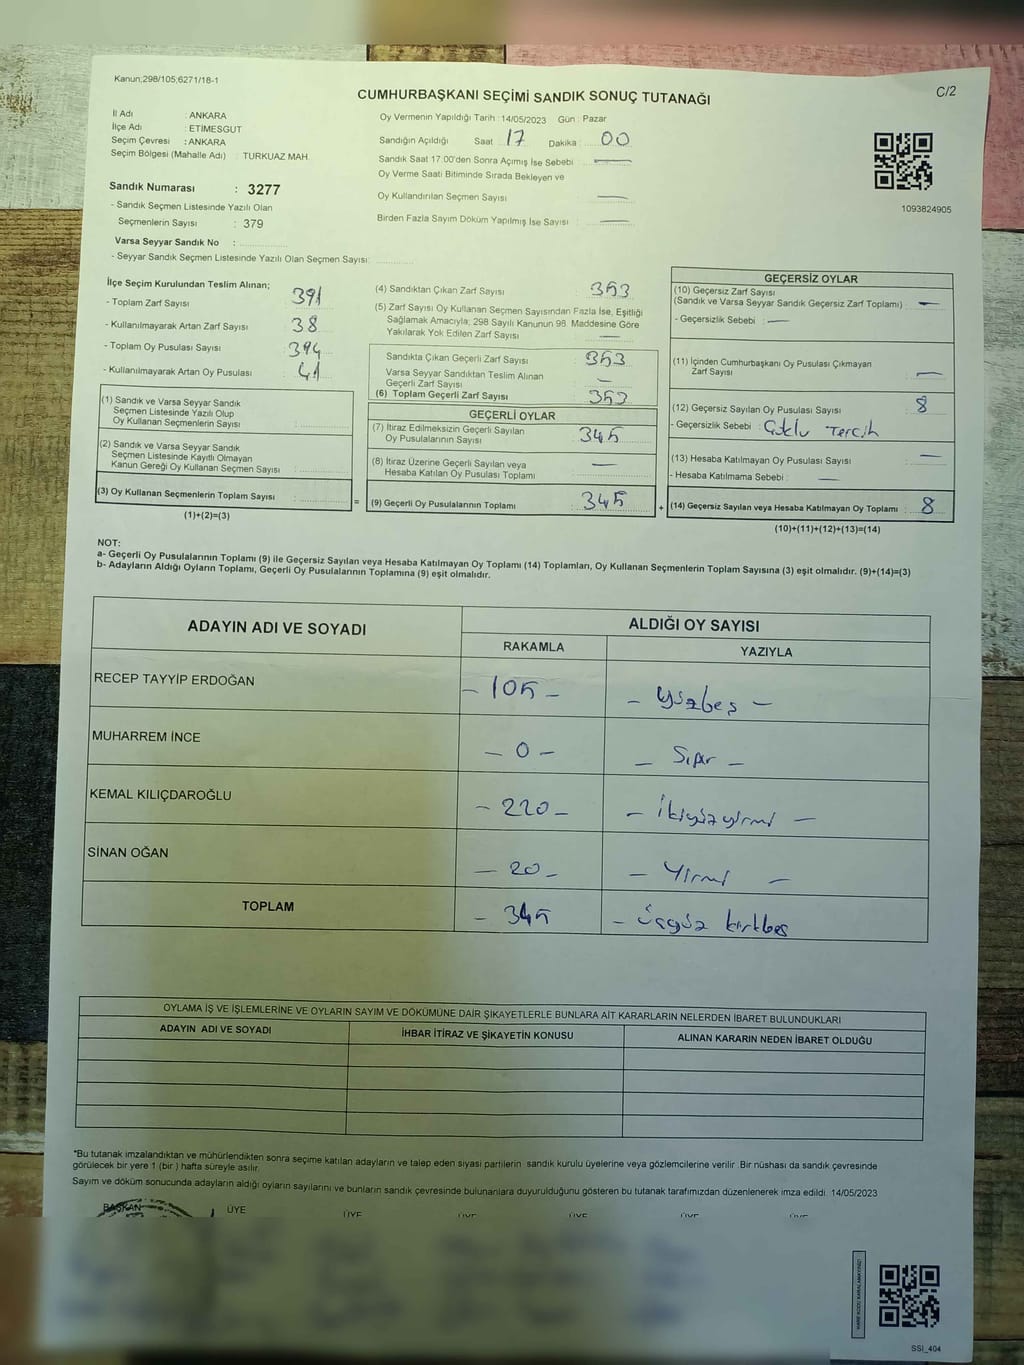 Kanun;298/105,6271/18-1
C/2
CUMHURBAŞKANI SEÇİMİ SANDIK SONUÇ TUTANAĞI
İl Adı : ANKARA
İlçe Adı : ETİMESGUT
Seçim Çevresi : ANKARA
Seçim Bölgesi (Mahalle Adı) : TURKUAZ MAH.
Sandık Numarası : 3277
- Sandık Seçmen Listesinde Yazılı Olan
Seçmenlerin Sayısı : 379
Varsa Seyyar Sandık No :
- Seyyar Sandık Seçmen Listesinde Yazılı Olan Seçmen Sayısı:
Oy Vermenin Yapıldığı Tarih : 14/05/2023 Gün : Pazar
Sandığın Açıldığı Saat : 17 Dakika : 00
Sandık Saat 17.00'den Sonra Açımış İse Sebebi : —
Oy Verme Saati Bitiminde Sırada Bekleyen ve
Oy Kullandırılan Seçmen Sayısı : —
Birden Fazla Sayım Döküm Yapılmış İse Sayısı : —
1093824905
İlçe Seçim Kurulundan Teslim Alınan;
- Toplam Zarf Sayısı : 391
- Kullanılmayarak Artan Zarf Sayısı : 38
- Toplam Oy Pusulası Sayısı : 394
- Kullanılmayarak Artan Oy Pusulası : 41
(1) Sandık ve Varsa Seyyar Sandık
Seçmen Listesinde Yazılı Olup
Oy Kullanan Seçmenlerin Sayısı :
(2) Sandık ve Varsa Seyyar Sandık
Seçmen Listesinde Kayıtlı Olmayan
Kanun Gereği Oy Kullanan Seçmen Sayısı :
(3) Oy Kullanan Seçmenlerin Toplam Sayısı :
(1)+(2)=(3)
(4) Sandıktan Çıkan Zarf Sayısı : 353
(5) Zarf Sayısı Oy Kullanan Seçmen Sayısından Fazla İse, Eşitliği
Sağlamak Amacıyla; 298 Sayılı Kanunun 98. Maddesine Göre
Yakılarak Yok Edilen Zarf Sayısı : —
Sandıkta Çıkan Geçerli Zarf Sayısı : 353
Varsa Seyyar Sandıktan Teslim Alınan
Geçerli Zarf Sayısı : —
(6) Toplam Geçerli Zarf Sayısı : 353
GEÇERLİ OYLAR
(7) İtiraz Edilmeksizin Geçerli Sayılan
Oy Pusulalarının Sayısı : 345
(8) İtiraz Üzerine Geçerli Sayılan veya
Hesaba Katılan Oy Pusulası Toplamı : —
= (9) Geçerli Oy Pusulalarının Toplamı : 345 +
GEÇERSİZ OYLAR
(10) Geçersiz Zarf Sayısı
(Sandık ve Varsa Seyyar Sandık Geçersiz Zarf Toplamı) : —
- Geçersizlik Sebebi : —
(11) İçinden Cumhurbaşkanı Oy Pusulası Çıkmayan
Zarf Sayısı : —
(12) Geçersiz Sayılan Oy Pusulası Sayısı : 8
- Geçersizlik Sebebi : Çoklu Tercih
(13) Hesaba Katılmayan Oy Pusulası Sayısı : —
- Hesaba Katılmama Sebebi : —
(14) Geçersiz Sayılan veya Hesaba Katılmayan Oy Toplamı : 8
(10)+(11)+(12)+(13)=(14)
NOT:
a- Geçerli Oy Pusulalarının Toplamı (9) ile Geçersiz Sayılan veya Hesaba Katılmayan Oy Toplamı (14) Toplamları, Oy Kullanan Seçmenlerin Toplam Sayısına (3) eşit olmalıdır. (9)+(14)=(3)
b- Adayların Aldığı Oyların Toplamı, Geçerli Oy Pusulalarının Toplamına (9) eşit olmalıdır.
ADAYIN ADI VE SOYADI ALDIĞI OY SAYISI
RAKAMLA YAZIYLA
RECEP TAYYİP ERDOĞAN - 105 - - Yüzbeş -
MUHARREM İNCE - 0 - - Sıfır -
KEMAL KILIÇDAROĞLU - 220 - - İkiyüzyirmi -
SİNAN OĞAN - 20 - - Yirmi -
TOPLAM - 345 - Üçyüz kırkbeş
OYLAMA İŞ VE İŞLEMLERİNE VE OYLARIN SAYIM VE DÖKÜMÜNE DAİR ŞİKAYETLERLE BUNLARA AİT KARARLARIN NELERDEN İBARET BULUNDUKLARI
ADAYIN ADI VE SOYADI İHBAR İTİRAZ VE ŞİKAYETİN KONUSU ALINAN KARARIN NEDEN İBARET OLDUĞU
*Bu tutanak imzalandıktan ve mühürlendikten sonra seçime katılan adayların ve talep eden siyasi partilerin sandık kurulu üyelerine veya gözlemcilerine verilir. Bir nüshası da sandık çevresinde
görülecek bir yere 1 (bir ) hafta süreyle asılır.
Sayım ve döküm sonucunda adayların aldığı oyların sayılarını ve bunların sandık çevresinde bulunanlara duyurulduğunu gösteren bu tutanak tarafımızdan düzenlenerek imza edildi. 14/05/2023
BAŞKAN ÜYE ÜYE ÜYE ÜYE ÜYE ÜYE
SSI_404